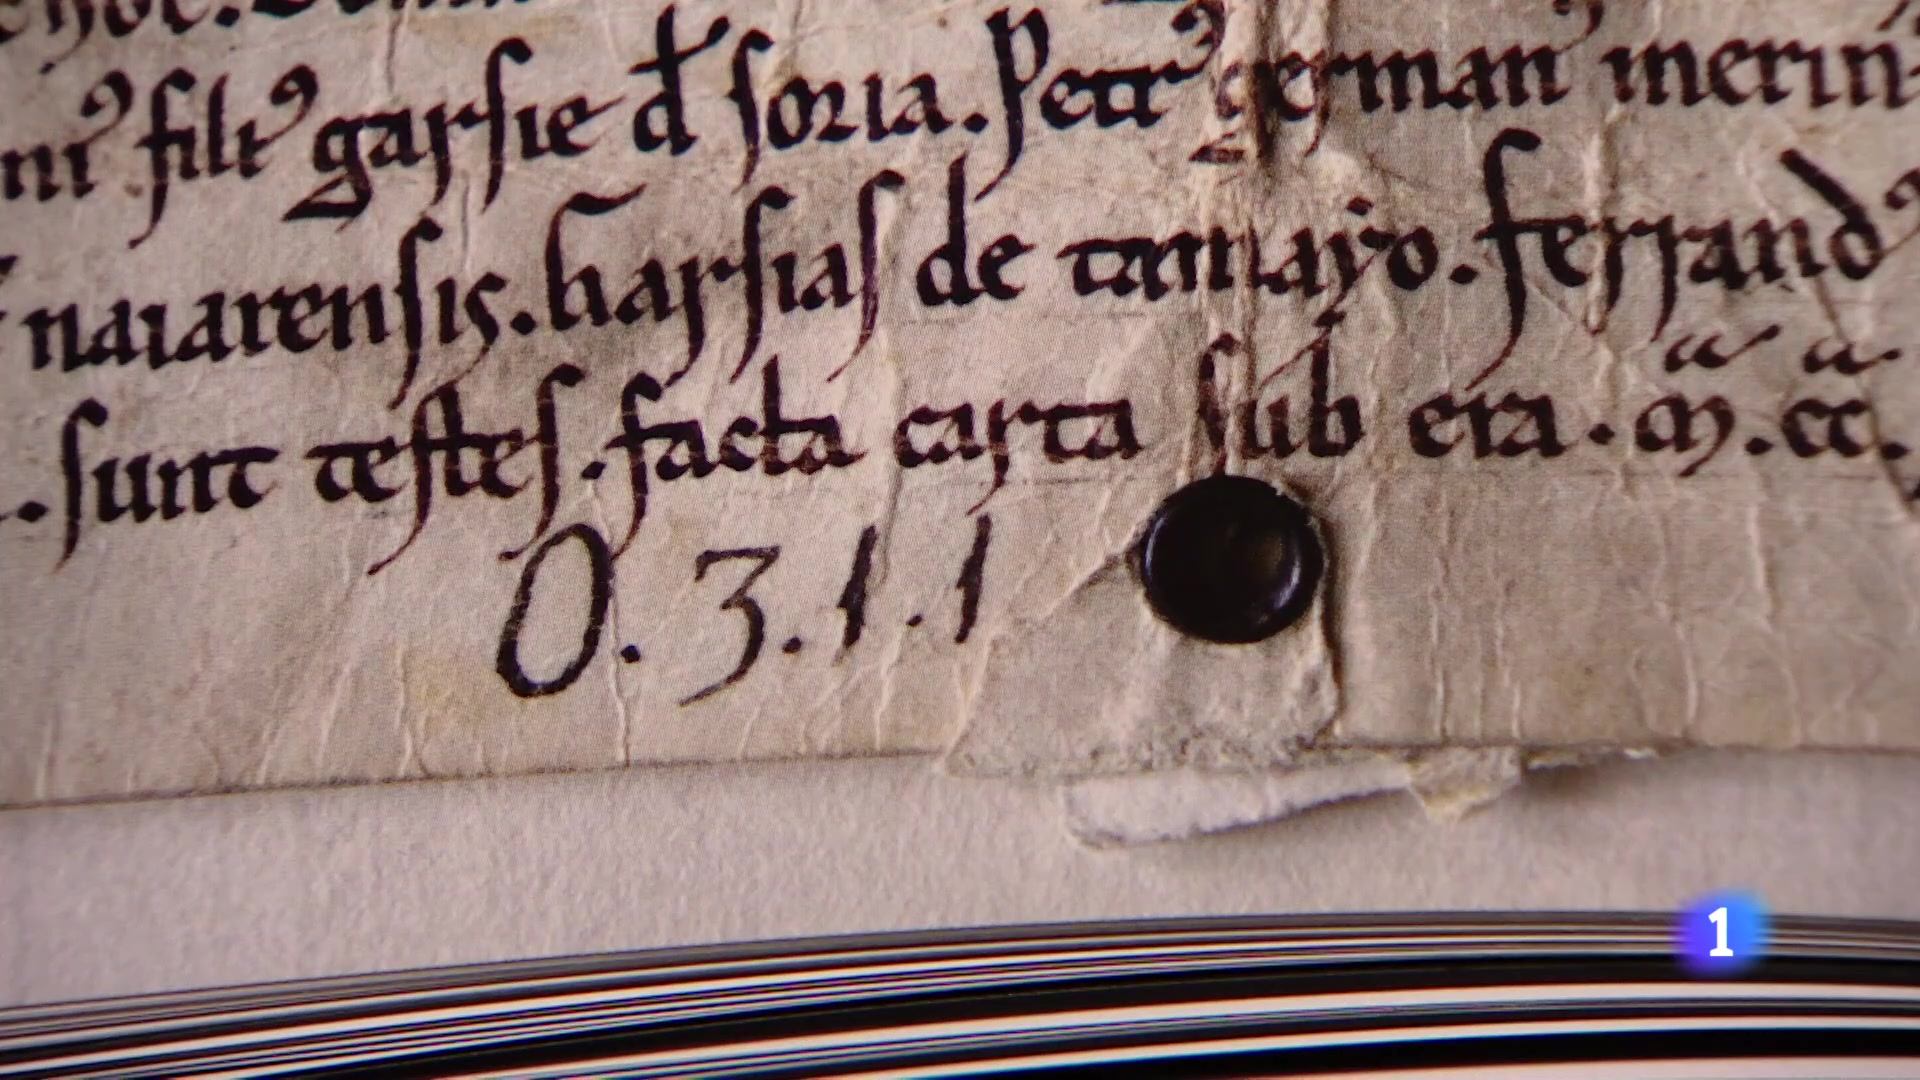 filiꝰ garsie đ soria. Petrꝰ german merin
naiarensis. Garsias de tamayo. ferrandꝰ
. sunt testes. facta carta sub era. m̃. c̃c̃.
O. 3. 1. 1
1